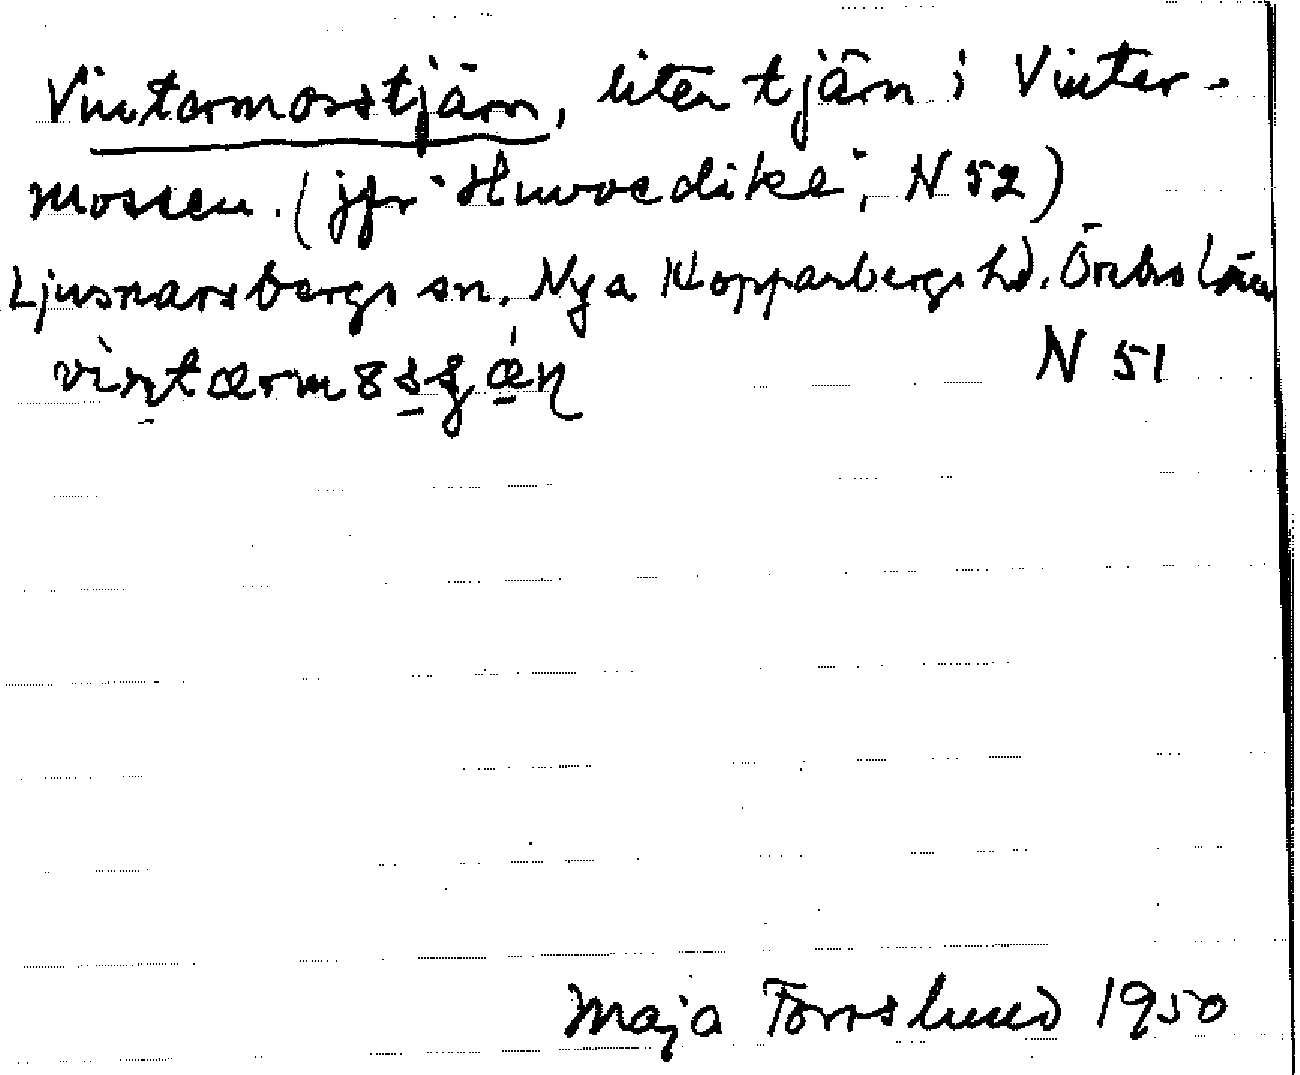 Vintermosstjärn, liten tjärn i Vinter-
mossen. (jfr "Huvvedike", N 52)
Ljusnarsbergs sn. Nya Kopparbergs hd. Örebro län
N 51
Maja Forsslund 1950